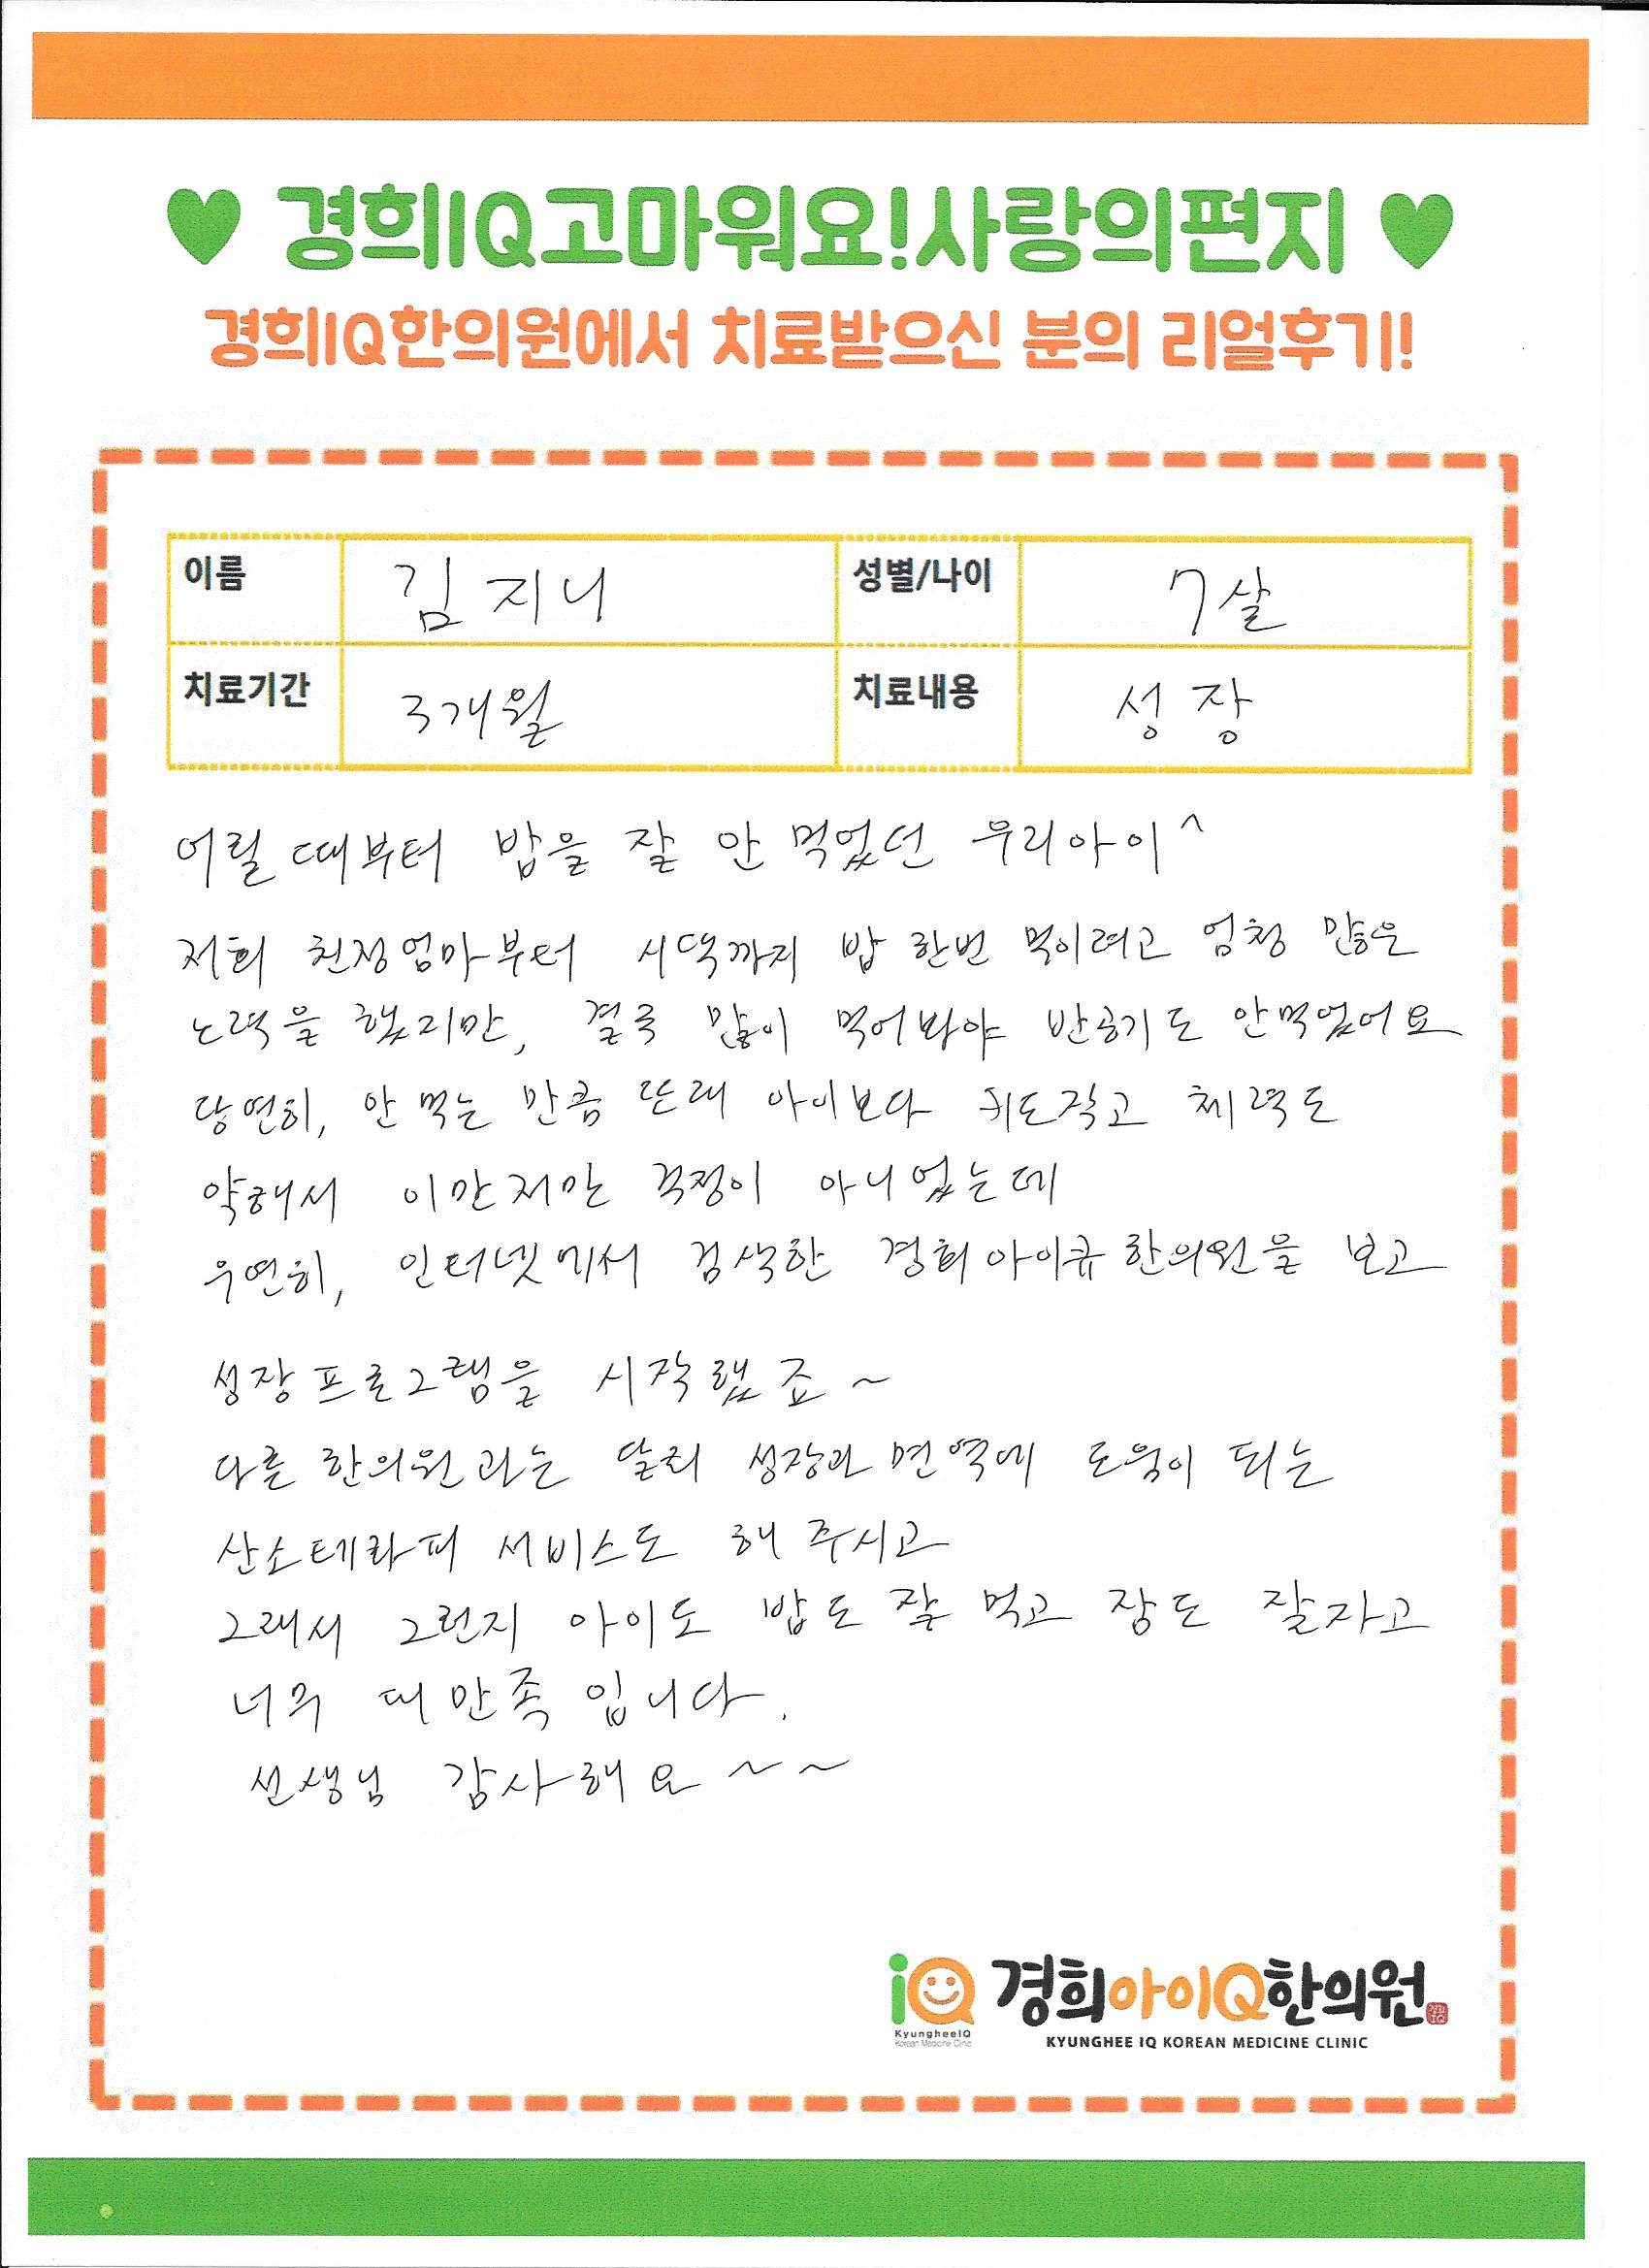 ♥ 경희IQ고마워요!사랑의편지 ♥
경희IQ한의원에서 치료받으신 분의 리얼후기!
이름 김지니 성별/나이 7살
치료기간 3개월 치료내용 성장
어릴 때부터 밥을 잘 안 먹었던 우리아이^
저희 친정엄마부터 시댁까지 밥 한번 먹이려고 엄청 많은
노력을 했지만, 결국 많이 먹어봐야 반공기도 안먹었어요
당연히, 안 먹는 만큼 또래 아이보다 키도작고 체력도
약해서 이만저만 걱정이 아니었는데
우연히, 인터넷에서 검색한 경희아이큐한의원을 보고
성장프로그램을 시작했죠~
다른 한의원과는 달리 성장과 면역에 도움이 되는
산소테라피 서비스도 해 주시고
그래서 그런지 아이도 밥도 잘 먹고 잠도 잘자고
너무 대만족입니다.
선생님 감사해요~~
iQ 경희아이Q한의원
KyungheeIQ
Korean Medicine Clinic
KYUNGHEE IQ KOREAN MEDICINE CLINIC